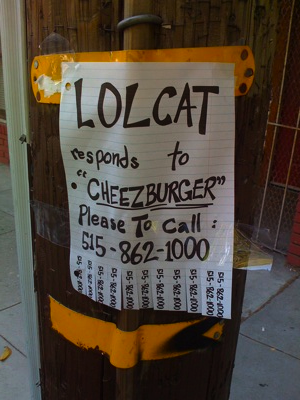 LOLCAT
responds to
"CHEEZBURGER"
Please To Call :
515-862-1000
515-862-1000
515-862-1000
515-862-1000
515-862-1000
515-862-1000
515-862-1000
515-862-1000
515-862-1000